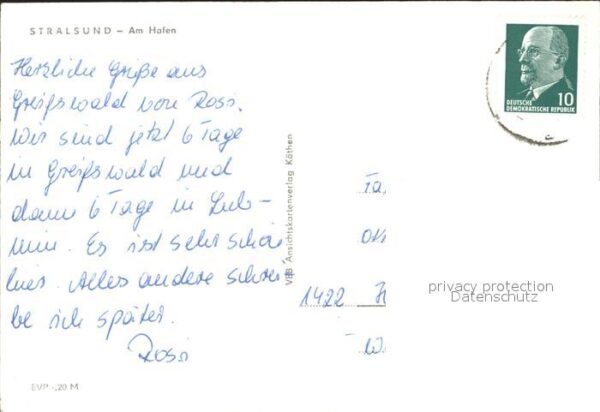 STRALSUND – Am Hafen
Herzliche Grüße aus
Greifswald von Rosi.
Wir sind jetzt 6 Tage
in Greifswald und
dann 6 Tage in Lub-
min. Es ist sehr schön
hier. Alles andere schrei
be ich später.
Rosi
EVP -,20 M
VEB Ansichtskartenverlag Köthen
10
DEUTSCHE
DEMOKRATISCHE REPUBLIK
1422 H
privacy protection
Datenschutz